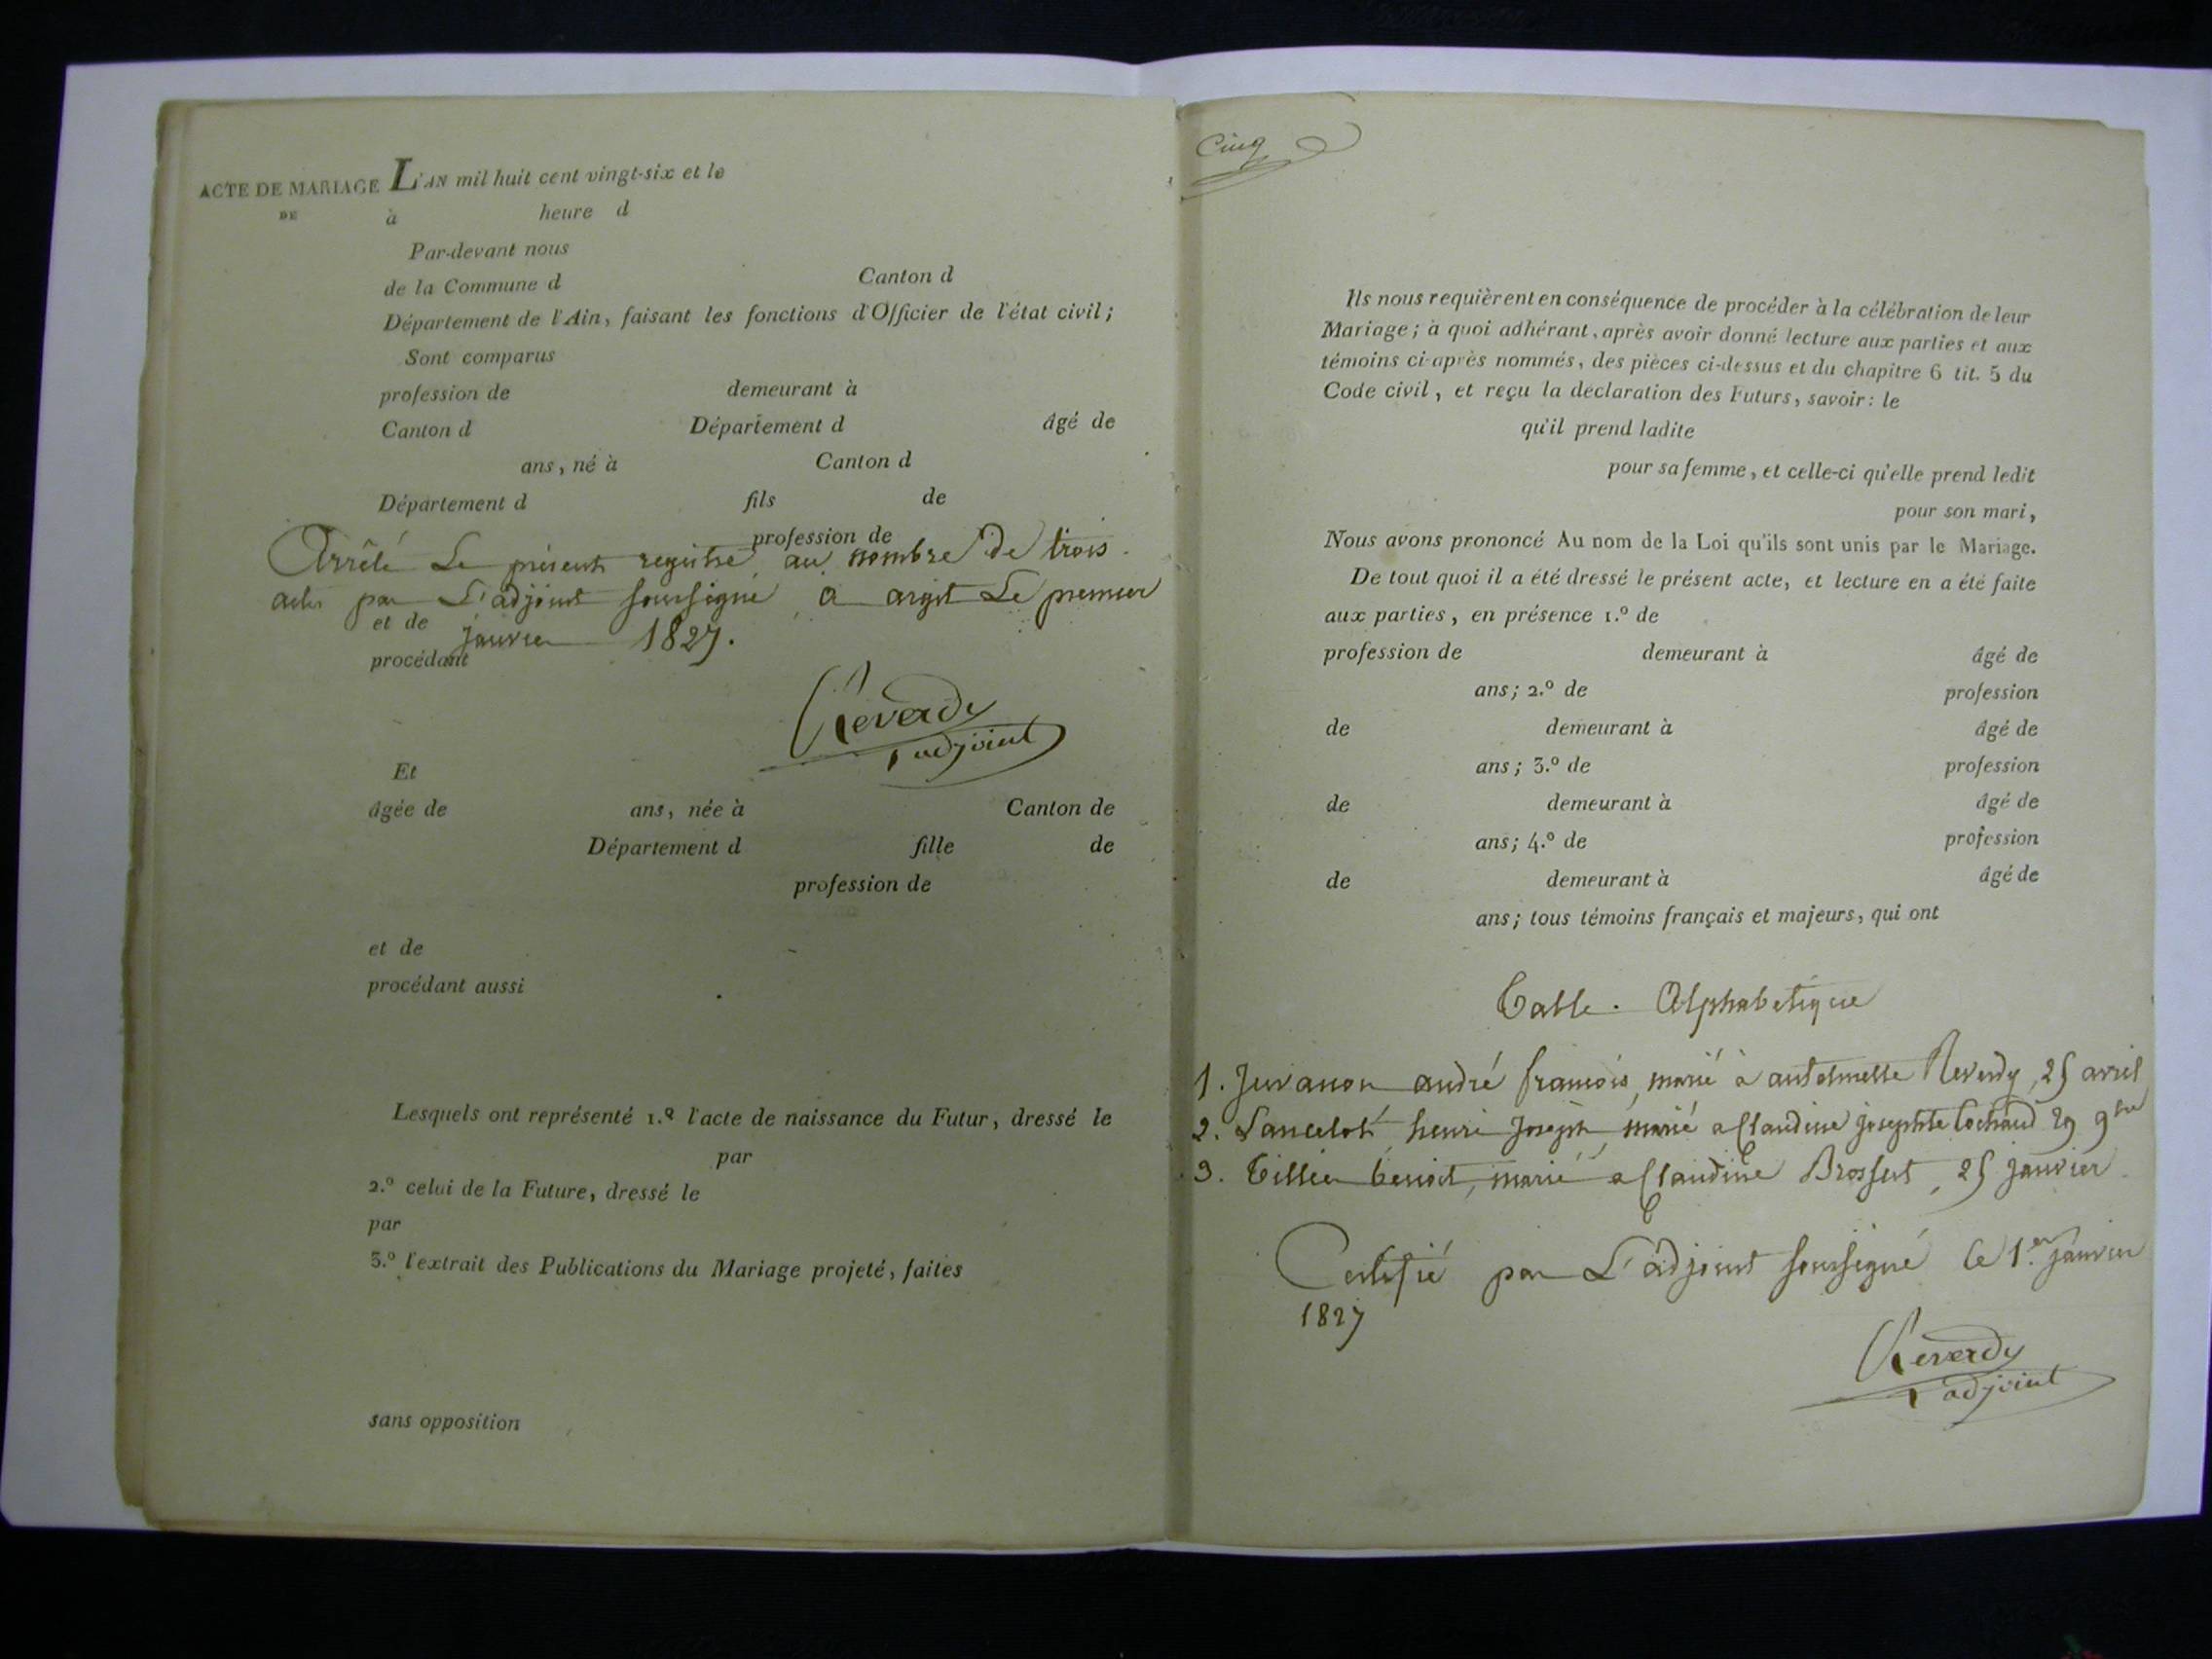 ACTE DE MARIAGE L'AN mil huit cent vingt-six et le
DE à heure d
Par-devant nous
de la Commune d Canton d
Département de l'Ain, faisant les fonctions d'Officier de l'état civil;
Sont comparus
profession de demeurant à
Canton d Département d âgé de
ans, né à Canton d
Département d fils de
profession de
Arrêté Le présent registre au nombre de trois
actes par L'adjoint soussigné a argit Le premier
et de
janvier 1827.
procédant
Reverdy
adjoint
Et
âgée de ans, née à Canton de
Département d fille de
profession de
et de
procédant aussi
Lesquels ont représenté 1.º l'acte de naissance du Futur, dressé le
par
2.º celui de la Future, dressé le
par
3.º l'extrait des Publications du Mariage projeté, faites
sans opposition
Cinq
Ils nous requièrent en conséquence de procéder à la célébration de leur
Mariage; à quoi adhérant, après avoir donné lecture aux parties et aux
témoins ci-après nommés, des pièces ci-dessus et du chapitre 6 tit. 5 du
Code civil, et reçu la déclaration des Futurs, savoir: le
qu'il prend ladite
pour sa femme, et celle-ci qu'elle prend ledit
pour son mari,
Nous avons prononcé Au nom de la Loi qu'ils sont unis par le Mariage.
De tout quoi il a été dressé le présent acte, et lecture en a été faite
aux parties, en présence 1.º de
profession de demeurant à âgé de
ans; 2.º de profession
de demeurant à âgé de
ans; 3.º de profession
de demeurant à âgé de
ans; 4.º de profession
de demeurant à âgé de
ans; tous témoins français et majeurs, qui ont
Table. Alphabetique
1. Juvanon andré francois, marié à antelmette Reverdy, 25 avril
2. Lancelot henri Joseph, marié a Claudine josephte Cochaud 29 9bre
3. Tillier benoit, marié a Claudine Brossut, 25 janvier
Certifié par L'adjoint soussigné le 1.er janvier
1827
Reverdy
adjoint